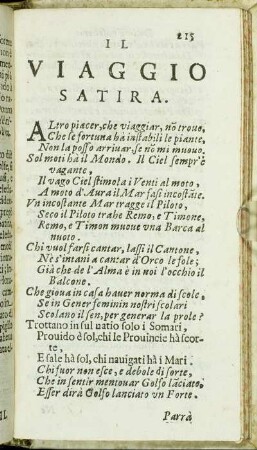 215
IL
VIAGGIO
SATIRA.
ALtro piacer, che viaggiar, nō trouo,
Che se fortuna hà instabili le piante,
Non la posso arriuar, se nō mi muouo.
Sol moti hà il Mondo. Il Ciel sempr'è
vagante,
Il vago Ciel stimola i Venti al moto,
A moto d'Aura il Mar fassi incostāte.
Vn incostante Mar tragge il Piloto,
Seco il Piloto trahe Remo, e Timone,
Remo, e Timon muoue vna Barca al
nuoto.
Chi vuol farsi cantar, lassi il Cantone,
Nè s'intani a cantar d'Orco le fole;
Già che de l'Alma è in noi l'occhio il
Balcone.
Che gioua in casa hauer norma di scole,
Se in Gener feminin nostri scolari
Scolano il sen, per generar la prole?
Trottano in sul natio solo i Somari,
Prouido è sol, chi le Prouincie hà scor-
te,
E sale hà sol, chi nauigati hà i Mari.
Chi fuor non esce, e debole di sorte,
Che in sentir mentouar Golfo lāciato,
Esser dirà Golfo lanciato vn Forte.
Parrà